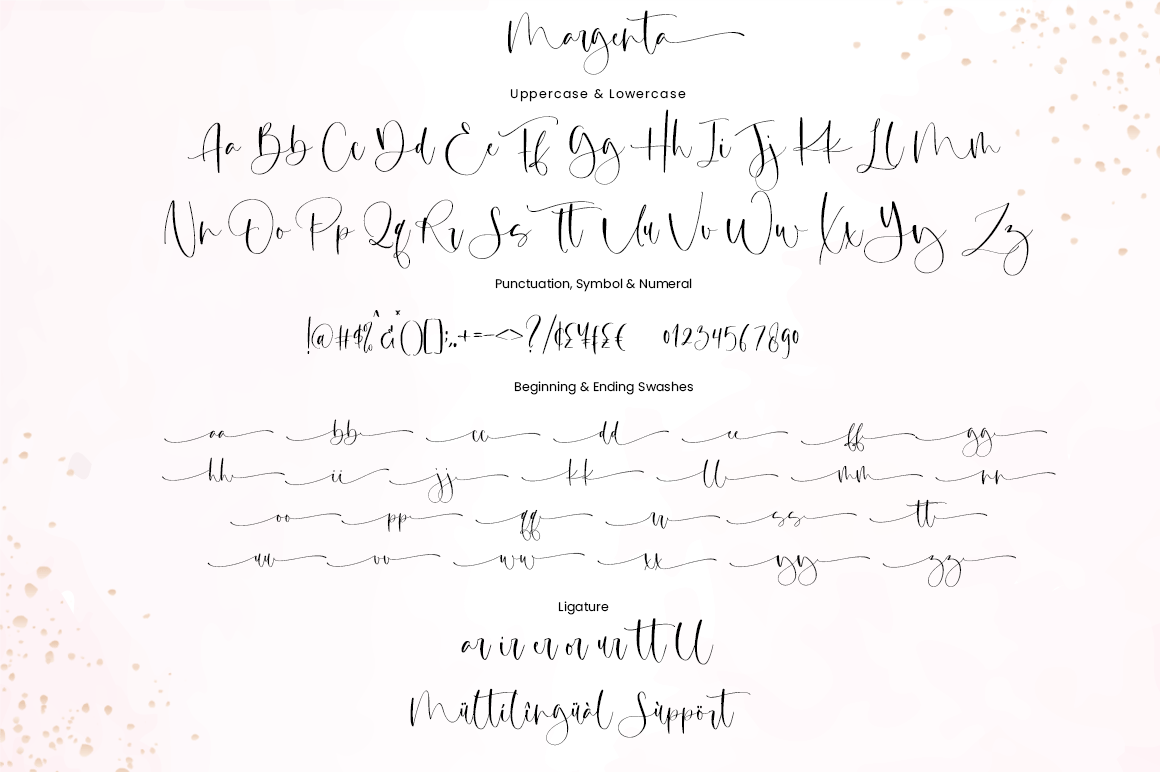 Margenta
Uppercase & Lowercase
Aa Bb Cc Dd Ee Ff Gg Hh Ii Jj Kk Ll Mm
Nn Oo Pp Qq Rr Ss Tt Uu Vv Ww Xx Yy Zz
Punctuation, Symbol & Numeral
!@#$%^&*()[];,.+=-<>?/¢£¥ƒ£€ 01234567890
Beginning & Ending Swashes
aa bb cc dd ee ff gg
hh ii jj kk ll mm nn
oo pp qq rr ss tt
uu vv ww xx yy zz
Ligature
ar ir er or ur tt ll
Mültilîngüàl Sùppört